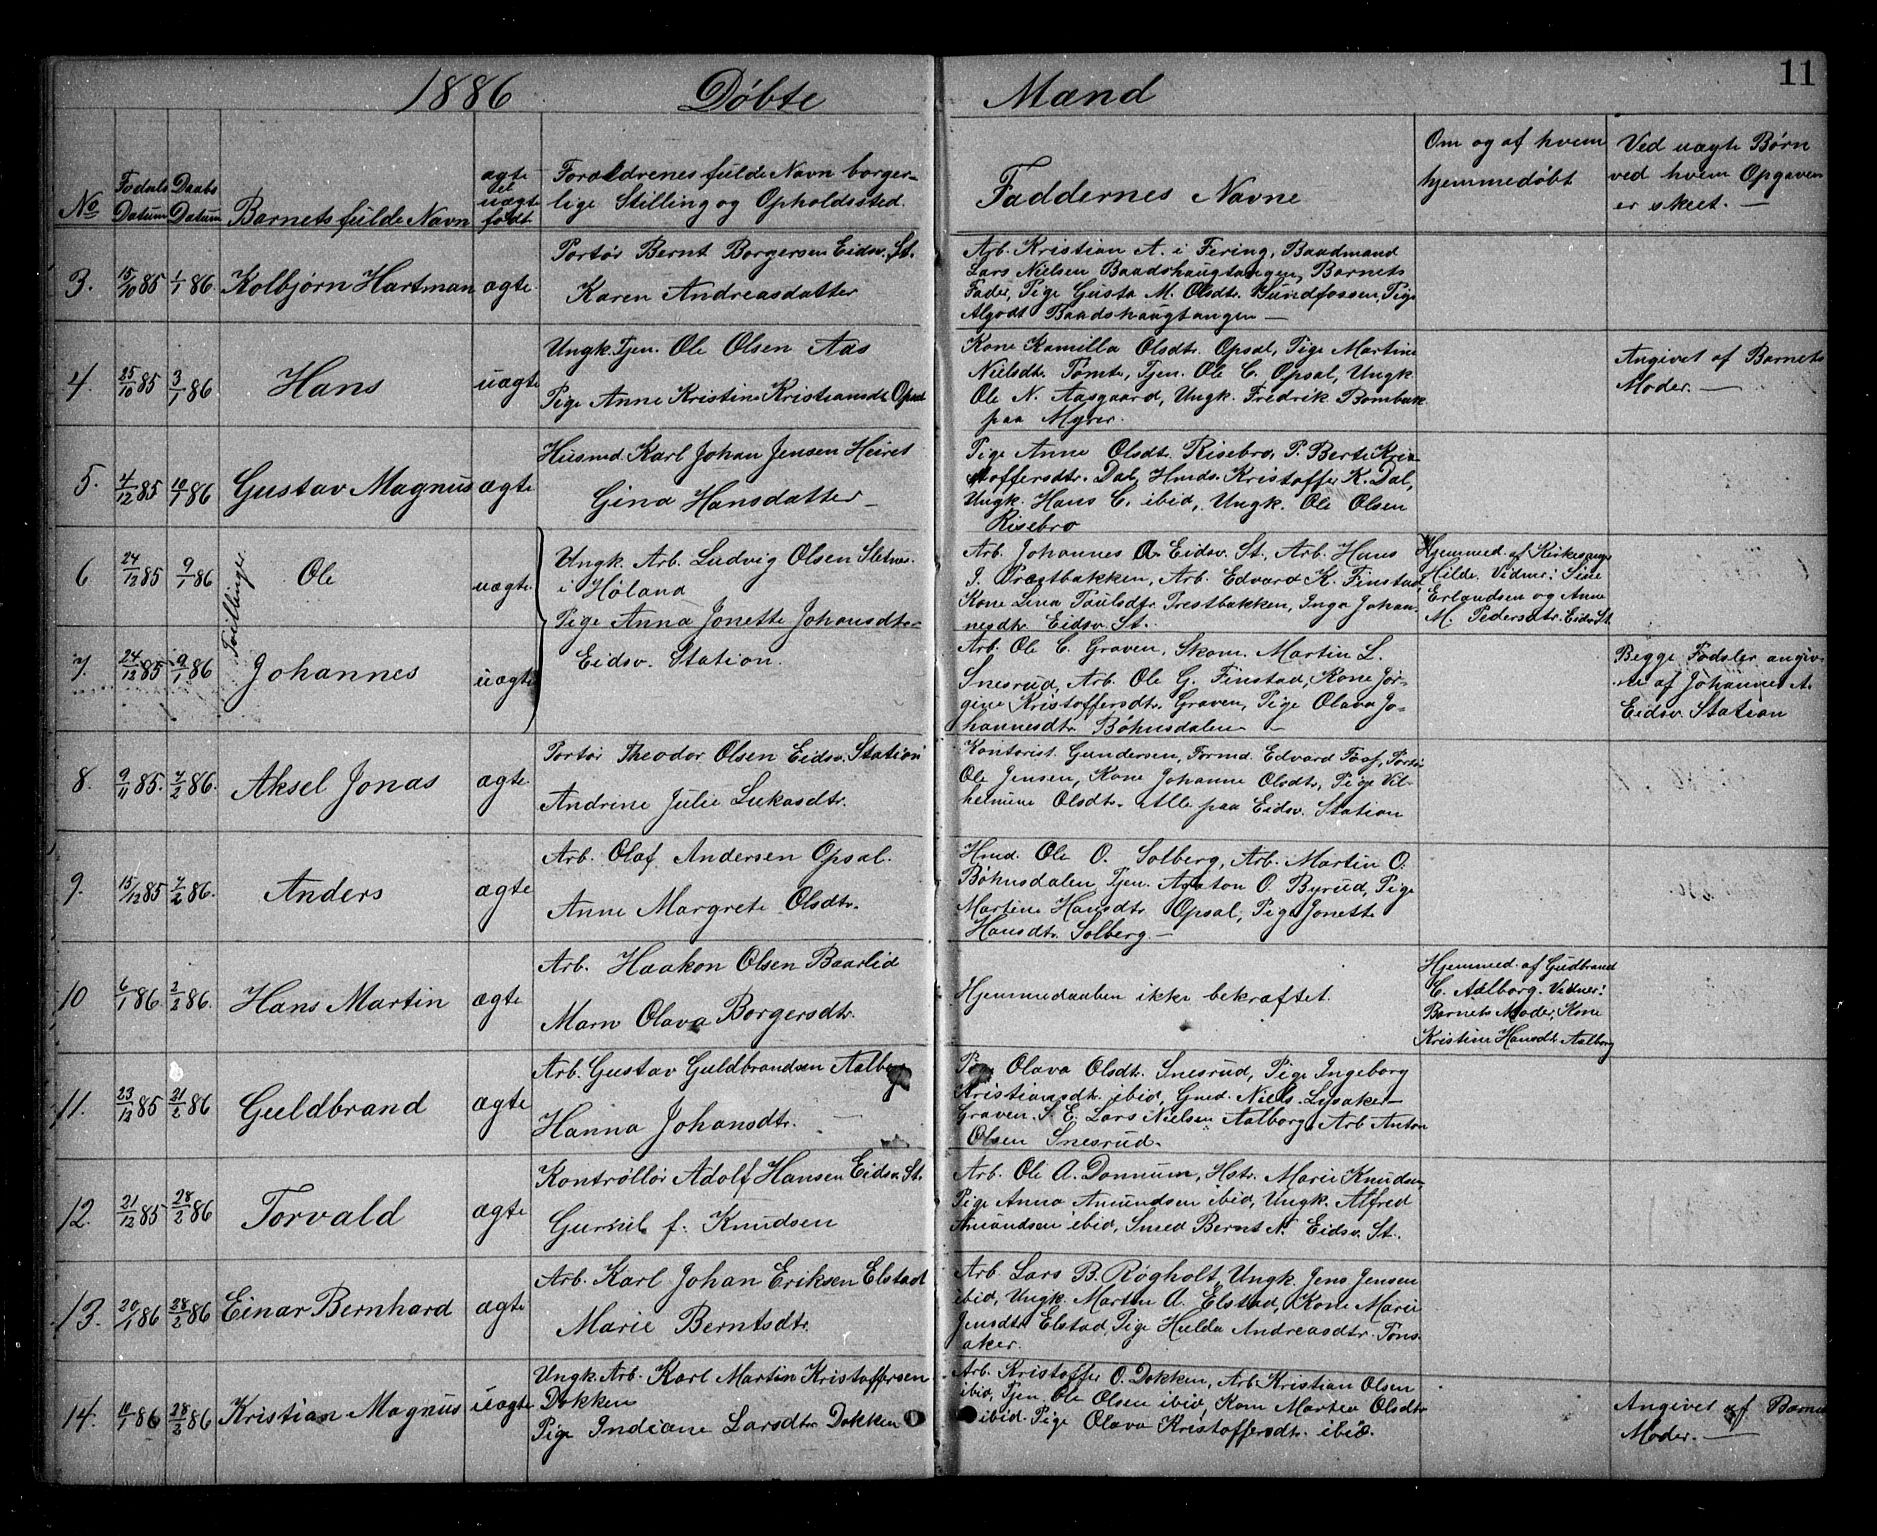 1886 Døbte Mænd 11
No
Fødsels Datum
Daabs Datum
Barnets fulde Navn
ægte el uægte født
Forældrenes fulde Navn borger-
lige Stilling og Opholdssted.
Faddernes Navne
Om og af hvem
hjemmedøbt
Ved uægte Børn
ved hvem Opgaven
er skeet. —
3. 15/10 85 1/1 86. Kolbjørn Hartman ægte.
Portør Bernt Borgersen Eidsv. St.
Karen Andreasdatter
Arb. Kristian A. i Fering, Baadmand
Lars Nielsen Baadshaugtangen, Barnets
Fader, Pige Gusta M. Olsdt. Sundfossen, Pige
Algodt Baadshaugtangen —
4. 25/10 85 3/1 86 Hans uægte
Ungk. Tjen. Ole Olsen Aas
Pige Anne Kristine Kristiansdt. Opsal
Kone Kamilla Olsdtr. Opsal, Pige Martine
Nielsdt. Tømte, Tjen. Ole C. Opsal, Ungk.
Ole N. Aasgaard, Ungk. Fredrik Bombæk
paa Myrer.
Angivet af Barnets
Moder. —
5. 4/12 85 10/1 86 Gustav Magnus ægte
Husmd. Karl Johan Jensen Heiret
Gina Hansdatter —
Pige Anne Olsdt. Risebro, P. Berte Kri-
stoffersdtr. Dal, Hmds. Kristoffer K. Dal,
Ungk. Hans C. ibid, Ungk. Ole Olsen
Risebro
6 24/12 85 9/1 86 Tvillinger Ole uægte
Ungk. Arb. Ludvig Olsen Sletnes
i Høland
Pige Anna Jonette Johansdtr.
Eidsv. Station.
Arb. Johannes A. Eidsv. St., Arb. Hans
J. Præstbakken, Arb. Edvard K. Finstad,
Kone Lina Paulsdtr. Prestbakken, Inga Johan-
nesdtr. Eidsv. St.
Hjemmed. af Kirkesanger
Hilde. Vidner: Sine
Erlandsen og Anne
M. Pedersdtr. Eidsv. St.
7. 24/12 85 9/1 86 Johannes uægte
Arb. Ole C. Graven, Skom. Martin L.
Snesrud, Arb. Ole G. Finstad, Kone Jør-
gine Kristoffersdtr. Graven, Pige Olava Jo-
hannesdtr. Bøhnsdalen —
Begge Fødsler angiv-
ne af Johannes A.
Eidsv. Station
8. 9/11 85. 7/2 86. Aksel Jonas ægte.
Portør Theodor Olsen Eidsv. Station
Andrine Julie Lukasdtr.
Kontorist Gundersen, Formd. Edvard Foaf, Portør
Ole Jensen, Kone Johanne Olsdtr., Pige Vil-
helmine Olsdtr. Alle paa Eidsv. Station
9. 15/12 85 7/2 86. Anders ægte
Arb. Olaf Andersen Opsal.
Anne Margrete Olsdtr.
Hmd. Ole O. Solberg, Arb. Martin O.
Bøhnsdalen, Tjen. Agaton O. Byrud, Pige
Martine Hansdtr. Opsal, Pige Jonette
Hansdtr. Solberg. —
10 6/1 86. 2/2 86. Hans Martin ægte
Arb. Haakon Olsen Baarlid
Marn Olava Borgersdtr.
Hjemmedaaben ikke bekræftet.
Hjemmed. af Gudbrand
C. Aalborg. Vidner:
Barnets Moder, Kone
Kristine Hansdt. Aalborg
11. 23/12 85 21/2 86 Guldbrand ægte
Arb. Gustav Guldbrandsen Aalborg
Hanna Johansdtr.
Olava Olsdt. Snesrud, Pige Ingeborg
Kristiansdtr. ibid, Gmd. Niels Lysaker
Graven. S. E. Lars Nielsen Aalborg, Arb Anton
Olsen Snesrud.
12. 21/12 85 28/2 86 Torvald ægte
Kontrollør Adolf Hansen Eidsv. St.
Gursil f. Knudsen
Arb. Ole A. Donnum, Hstr. Marie Knudsen,
Pige Anna Amundsen ibid, Ungk. Alfred
Amundsen ibid, Smed Bernt N. Eidsv. St.
13. 20/1 86 28/2 86 Einar Bernhard ægte
Arb. Karl Johan Eriksen Elstad
Marie Berntsdtr.
Arb. Lars B. Røgholt, Ungk. Jens Jensen
ibid, Ungk. Martin A. Elstad, Kone Marie
Jensdtr. Elstad, Pige Hulda Andreasdtr. Tøns-
aker.
14. 10/1 86 28/2 86 Kristian Magnus uægte
Ungk. Arb. Karl Martin Kristoffersen
Dokken
Pige Indiane Larsdtr. Dokken
Arb. Kristoffer O. Dokken, Arb. Kristian Olsen
ibid, Tjen Ole Olsen ibid, Kone Martea Olsdtr.
ibid. Pige Olava Kristoffersdtr. ibid.
Angivet af Barnets
Moder. —